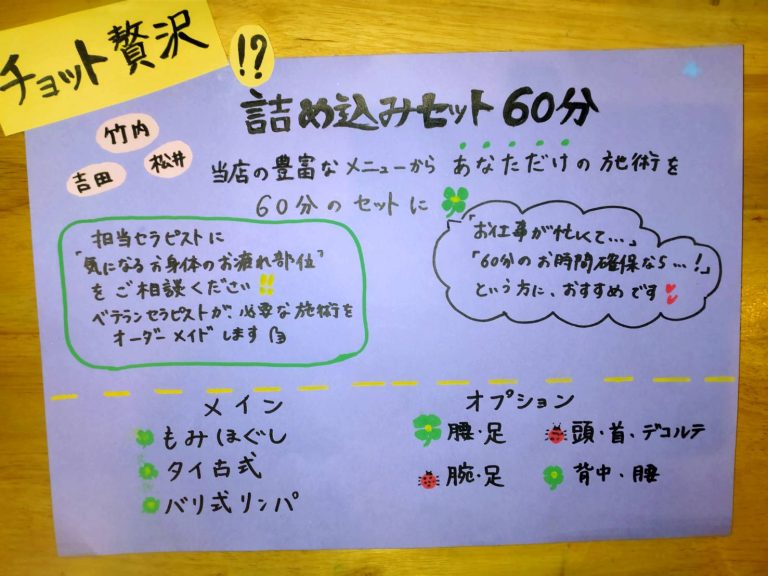 チョット贅沢
!?
詰め込みセット60分
竹内
吉田
松井
当店の豊富なメニューから あなただけの施術を
60分のセットに
担当セラピストに
「気になるお身体のお疲れ部位」
をご相談ください!!
ベテランセラピストが、必要な施術を
オーダーメイドします
「お仕事が忙しくて…」
「60分のお時間確保なら…!」
という方に、おすすめです
メイン
もみほぐし
タイ古式
バリ式リンパ
オプション
腰・足
頭・首・デコルテ
腕・足
背中・腰